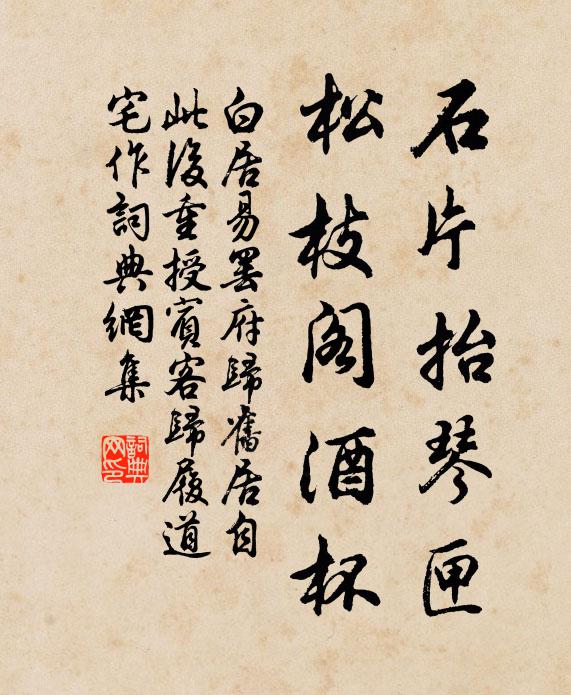 石片抬琴匣
松枝閣酒杯
白居易罢府歸舊居自
此後重授賓客歸履道
宅作詞典網集
詞典网印